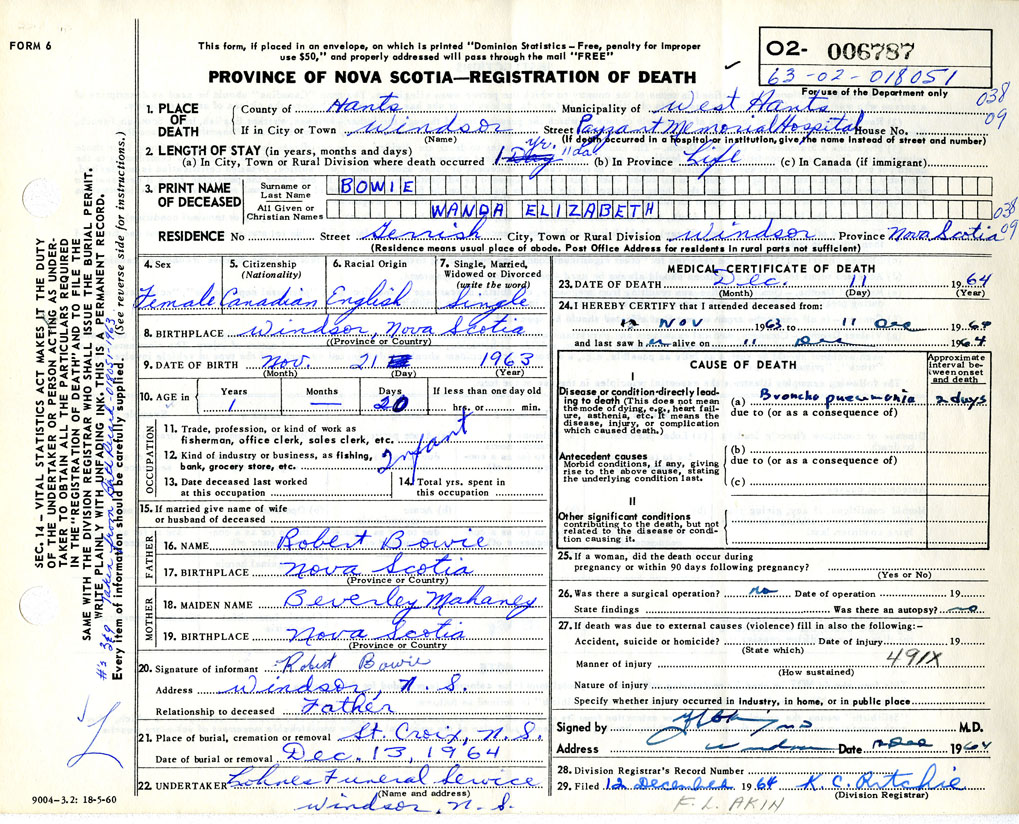 FORM 6
This form, if placed in an envelope, on which is printed "Dominion Statistics—Free, penalty for improper
use $50," and properly addressed will pass through the mail "FREE"
PROVINCE OF NOVA SCOTIA—REGISTRATION OF DEATH
02- 006787
63-02-018051
For use of the Department only
038
09
1. PLACE OF DEATH
County of Hants Municipality of West Hants
If in City or Town Windsor Street Payzant Memorial Hospital House No.
(Name) (If death occurred in a hospital or institution, give the name instead of street and number)
2. LENGTH OF STAY (in years, months and days)
(a) In City, Town or Rural Division where death occurred 1 yr. 11 da (b) In Province Life (c) In Canada (if immigrant)
3. PRINT NAME OF DECEASED
Surname or Last Name BOWIE
All Given or Christian Names WANDA ELIZABETH
038
09
RESIDENCE No Street Gerrish City, Town or Rural Division Windsor Province Nova Scotia
(Residence means usual place of abode. Post Office Address for residents in rural parts not sufficient)
4. Sex
Female
5. Citizenship (Nationality)
Canadian
6. Racial Origin
English
7. Single, Married, Widowed or Divorced (write the word)
Single
8. BIRTHPLACE Windsor, Nova Scotia
(Province or Country)
9. DATE OF BIRTH Nov. 21 1963
(Month) (Day) (Year)
10. AGE in Years Months Days If less than one day old
1 — 20 hrs. or min.
OCCUPATION
11. Trade, profession, or kind of work as
fisherman, office clerk, sales clerk, etc.
Infant
12. Kind of industry or business, as fishing,
bank, grocery store, etc.
13. Date deceased last worked
at this occupation
14. Total yrs. spent in
this occupation
15. If married give name of wife
or husband of deceased
FATHER
16. NAME Robert Bowie
17. BIRTHPLACE Nova Scotia
(Province or Country)
MOTHER
18. MAIDEN NAME Beverley Mahaney
19. BIRTHPLACE Nova Scotia
(Province or Country)
20. Signature of informant Robert Bowie
Address Windsor, N.S.
Relationship to deceased Father
21. Place of burial, cremation or removal St. Croix, N.S.
Date of burial or removal Dec. 13, 1964
22. UNDERTAKER Lohnes Funeral Service
(Name and address)
Windsor, N.S.
MEDICAL CERTIFICATE OF DEATH
23. DATE OF DEATH Dec. 11 1964
(Month) (Day) (Year)
24. I HEREBY CERTIFY that I attended deceased from:
12 Nov 1963 to 11 Dec 1964
and last saw her alive on 11 Dec 1964
CAUSE OF DEATH
Approximate interval between onset and death
I
Disease or condition directly leading to death (This does not mean the mode of dying, e.g., heart failure, asthenia, etc. It means the disease, injury, or complication which caused death.)
(a) Broncho pneumonia 2 days
due to (or as a consequence of)
Antecedent causes
Morbid conditions, if any, giving rise to the above cause, stating the underlying condition last.
(b)
due to (or as a consequence of)
(c)
II
Other significant conditions
contributing to the death, but not related to the disease or condition causing it.
25. If a woman, did the death occur during
pregnancy or within 90 days following pregnancy?
(Yes or No)
26. Was there a surgical operation? no Date of operation 19
State findings Was there an autopsy? no
27. If death was due to external causes (violence) fill in also the following:—
Accident, suicide or homicide? Date of injury 19
(State which)
491X
Manner of injury
(How sustained)
Nature of injury
Specify whether injury occurred in industry, in home, or in public place
Signed by M.D.
Address Windsor Date 12 Dec 1964
28. Division Registrar's Record Number
29. Filed 12 December 1964 K. C. Ritchie
(Division Registrar)
F. L. AKIN
SEC. 14—VITAL STATISTICS ACT MAKES IT THE DUTY
OF THE UNDERTAKER OR PERSON ACTING AS UNDER-
TAKER TO OBTAIN ALL THE PARTICULARS REQUIRED
IN THE "REGISTRATION OF DEATH" AND TO FILE THE
SAME WITH THE DIVISION REGISTRAR WHO SHALL ISSUE THE BURIAL PERMIT.
WRITE PLAINLY WITH UNFADING INK. THIS IS A PERMANENT RECORD.
Every item of information should be carefully supplied. (See reverse side for instructions.)
#'s 3 & 9 taken from Birth Record-18051-1963
9004-3.2: 18-5-60